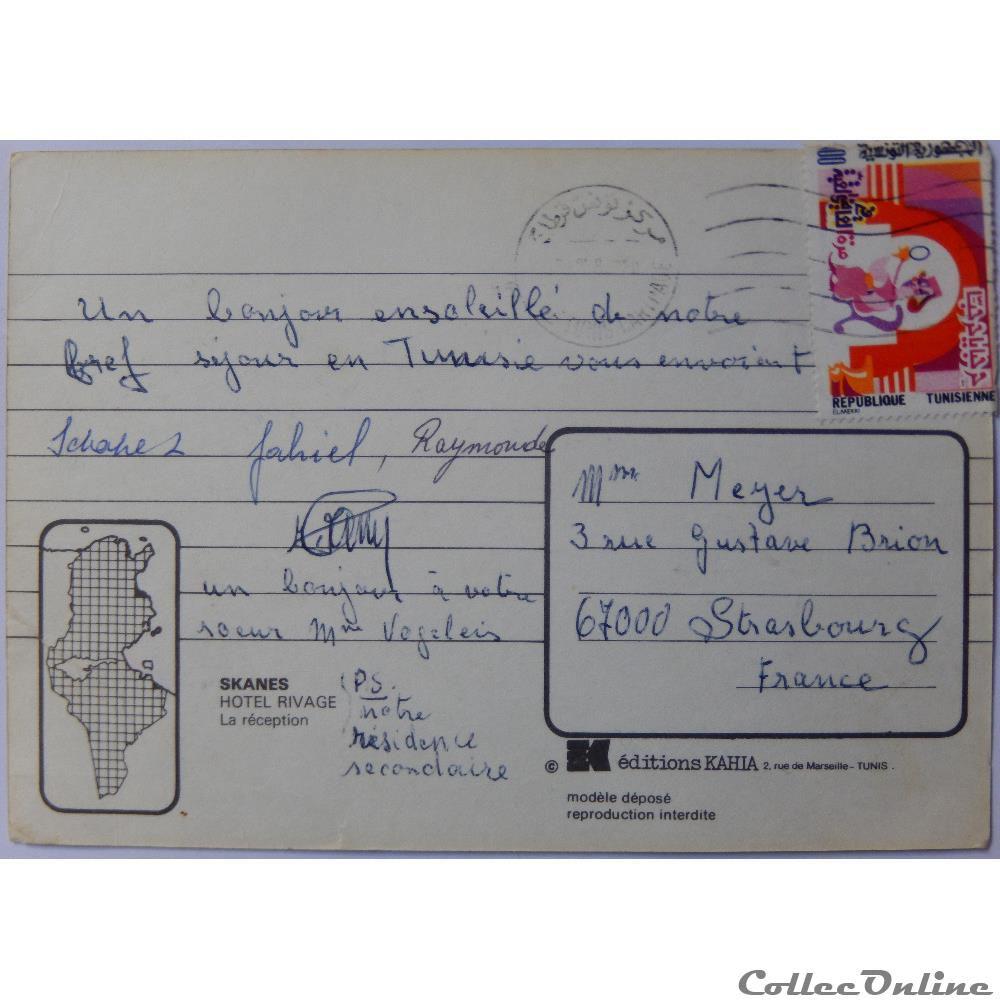 مركز تونس قرطاج
REPUBLIQUE TUNISIENNE
ELMEKKI
Un bonjour ensoleillé de notre
bref séjour en Tunisie vous envoient
Jahiel, Raymonde
un bonjour à votre
soeur Mme Vogeleis
SKANES
HOTEL RIVAGE
La réception
(P.S.
notre
résidence
secondaire
Mme Meyer
3 rue Gustave Brion
67000 Strasbourg
France
© éditions KAHIA 2, rue de Marseille - TUNIS .
modèle déposé
reproduction interdite
CollecOnline